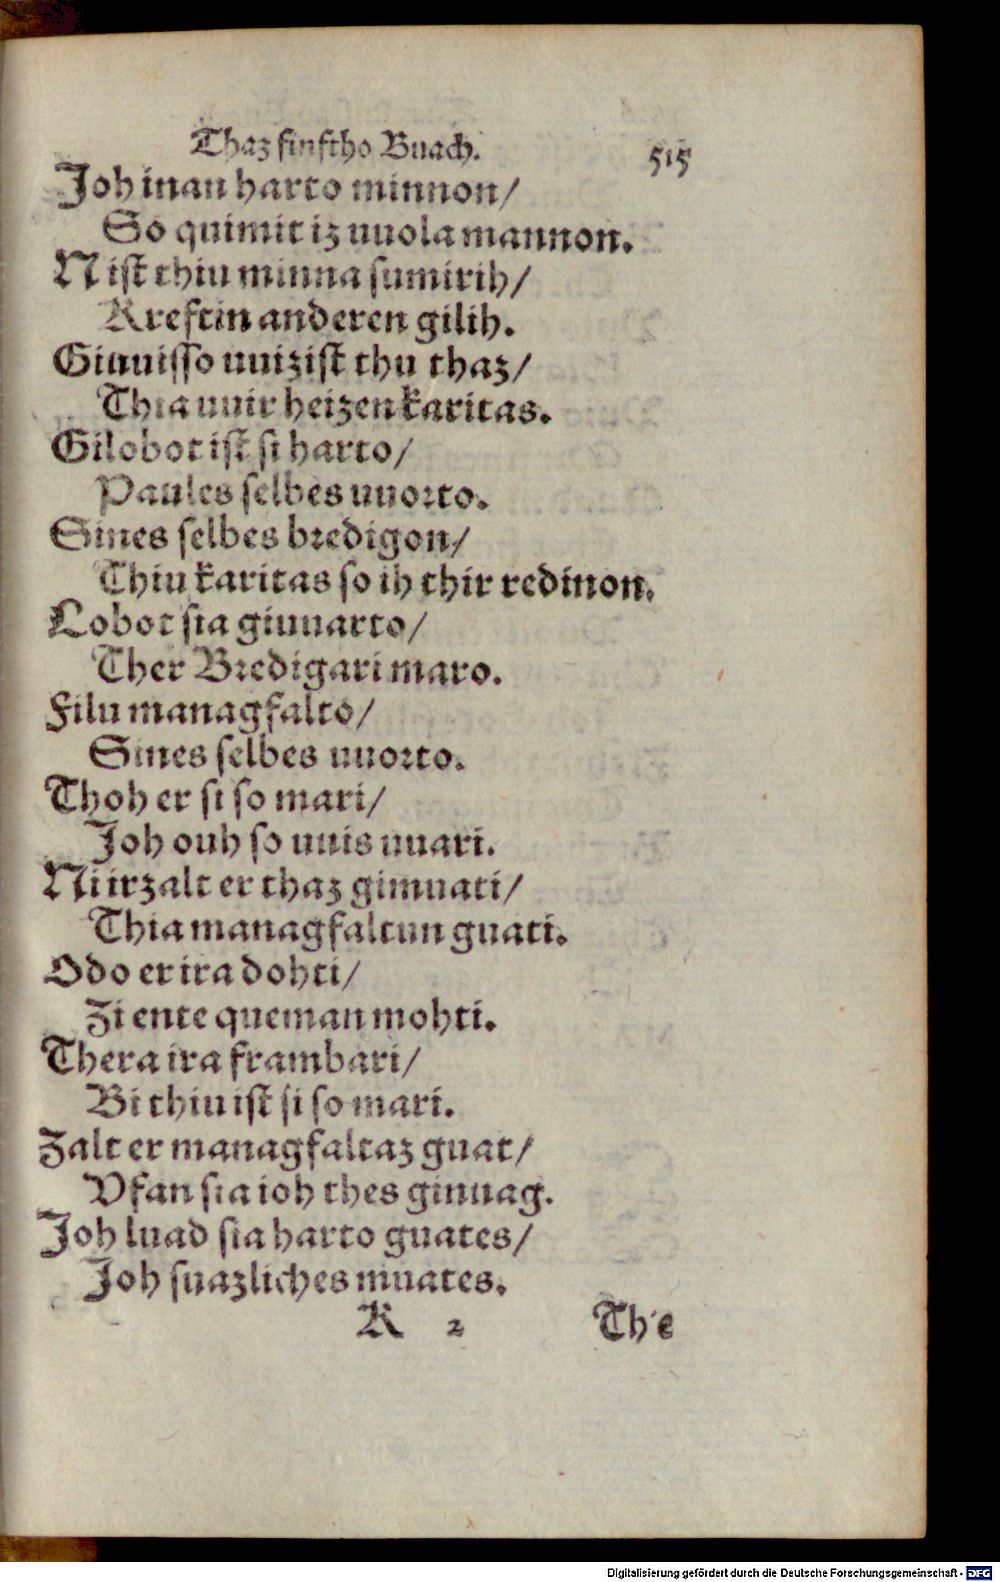 Thaz finftho Buach. 515
Joh inan harto minnon/
So quimit iz uuola mannon.
Nist thiu minna sumirih/
Kreftin anderen gilih.
Giuuisso uuizist thu thaz/
Thia uuir heizen karitas.
Gilobot ist si harto/
Paules selbes uuorto.
Sines selbes bredigon/
Thiu karitas so ih thir redinon.
Lobot sia giuuarto/
Ther Bredigari maro.
Filu managfalto/
Sines selbes uuorto.
Thoh er si so mari/
Joh ouh so uuis uuari.
Ni irzalt er thaz gimuati/
Thia managfaltun guati.
Odo er ira dohti/
Zi ente queman mohti.
Thera ira frambari/
Bi thiu ist si so mari.
Zalt er managfaltaz guat/
Vfan sia ioh thes ginuag.
Joh luad sia harto guates/
Joh suazliches muates.
K 2 The
Digitalisierung gefördert durch die Deutsche Forschungsgemeinschaft - DFG